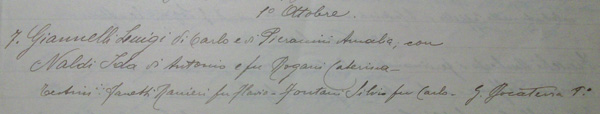 1º Ottobre.
7. Giannelli Luigi di Carlo e di Pierannini Amalia, con
Naldi Ida di Antonio e fu Rogani Caterina
Testimⁱ: Zanetti Ranieri fu Flavio - Montani Silvio fu Carlo - G. Bocaterra